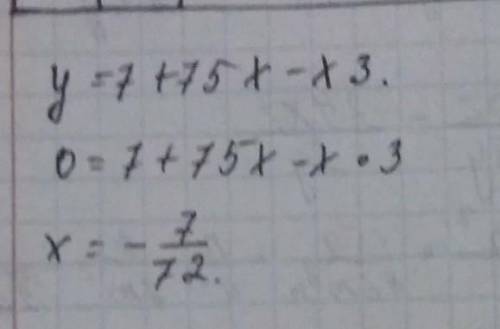 y = 7 + 75x - x3.
0 = 7 + 75x - x • 3
x = - 7/72.